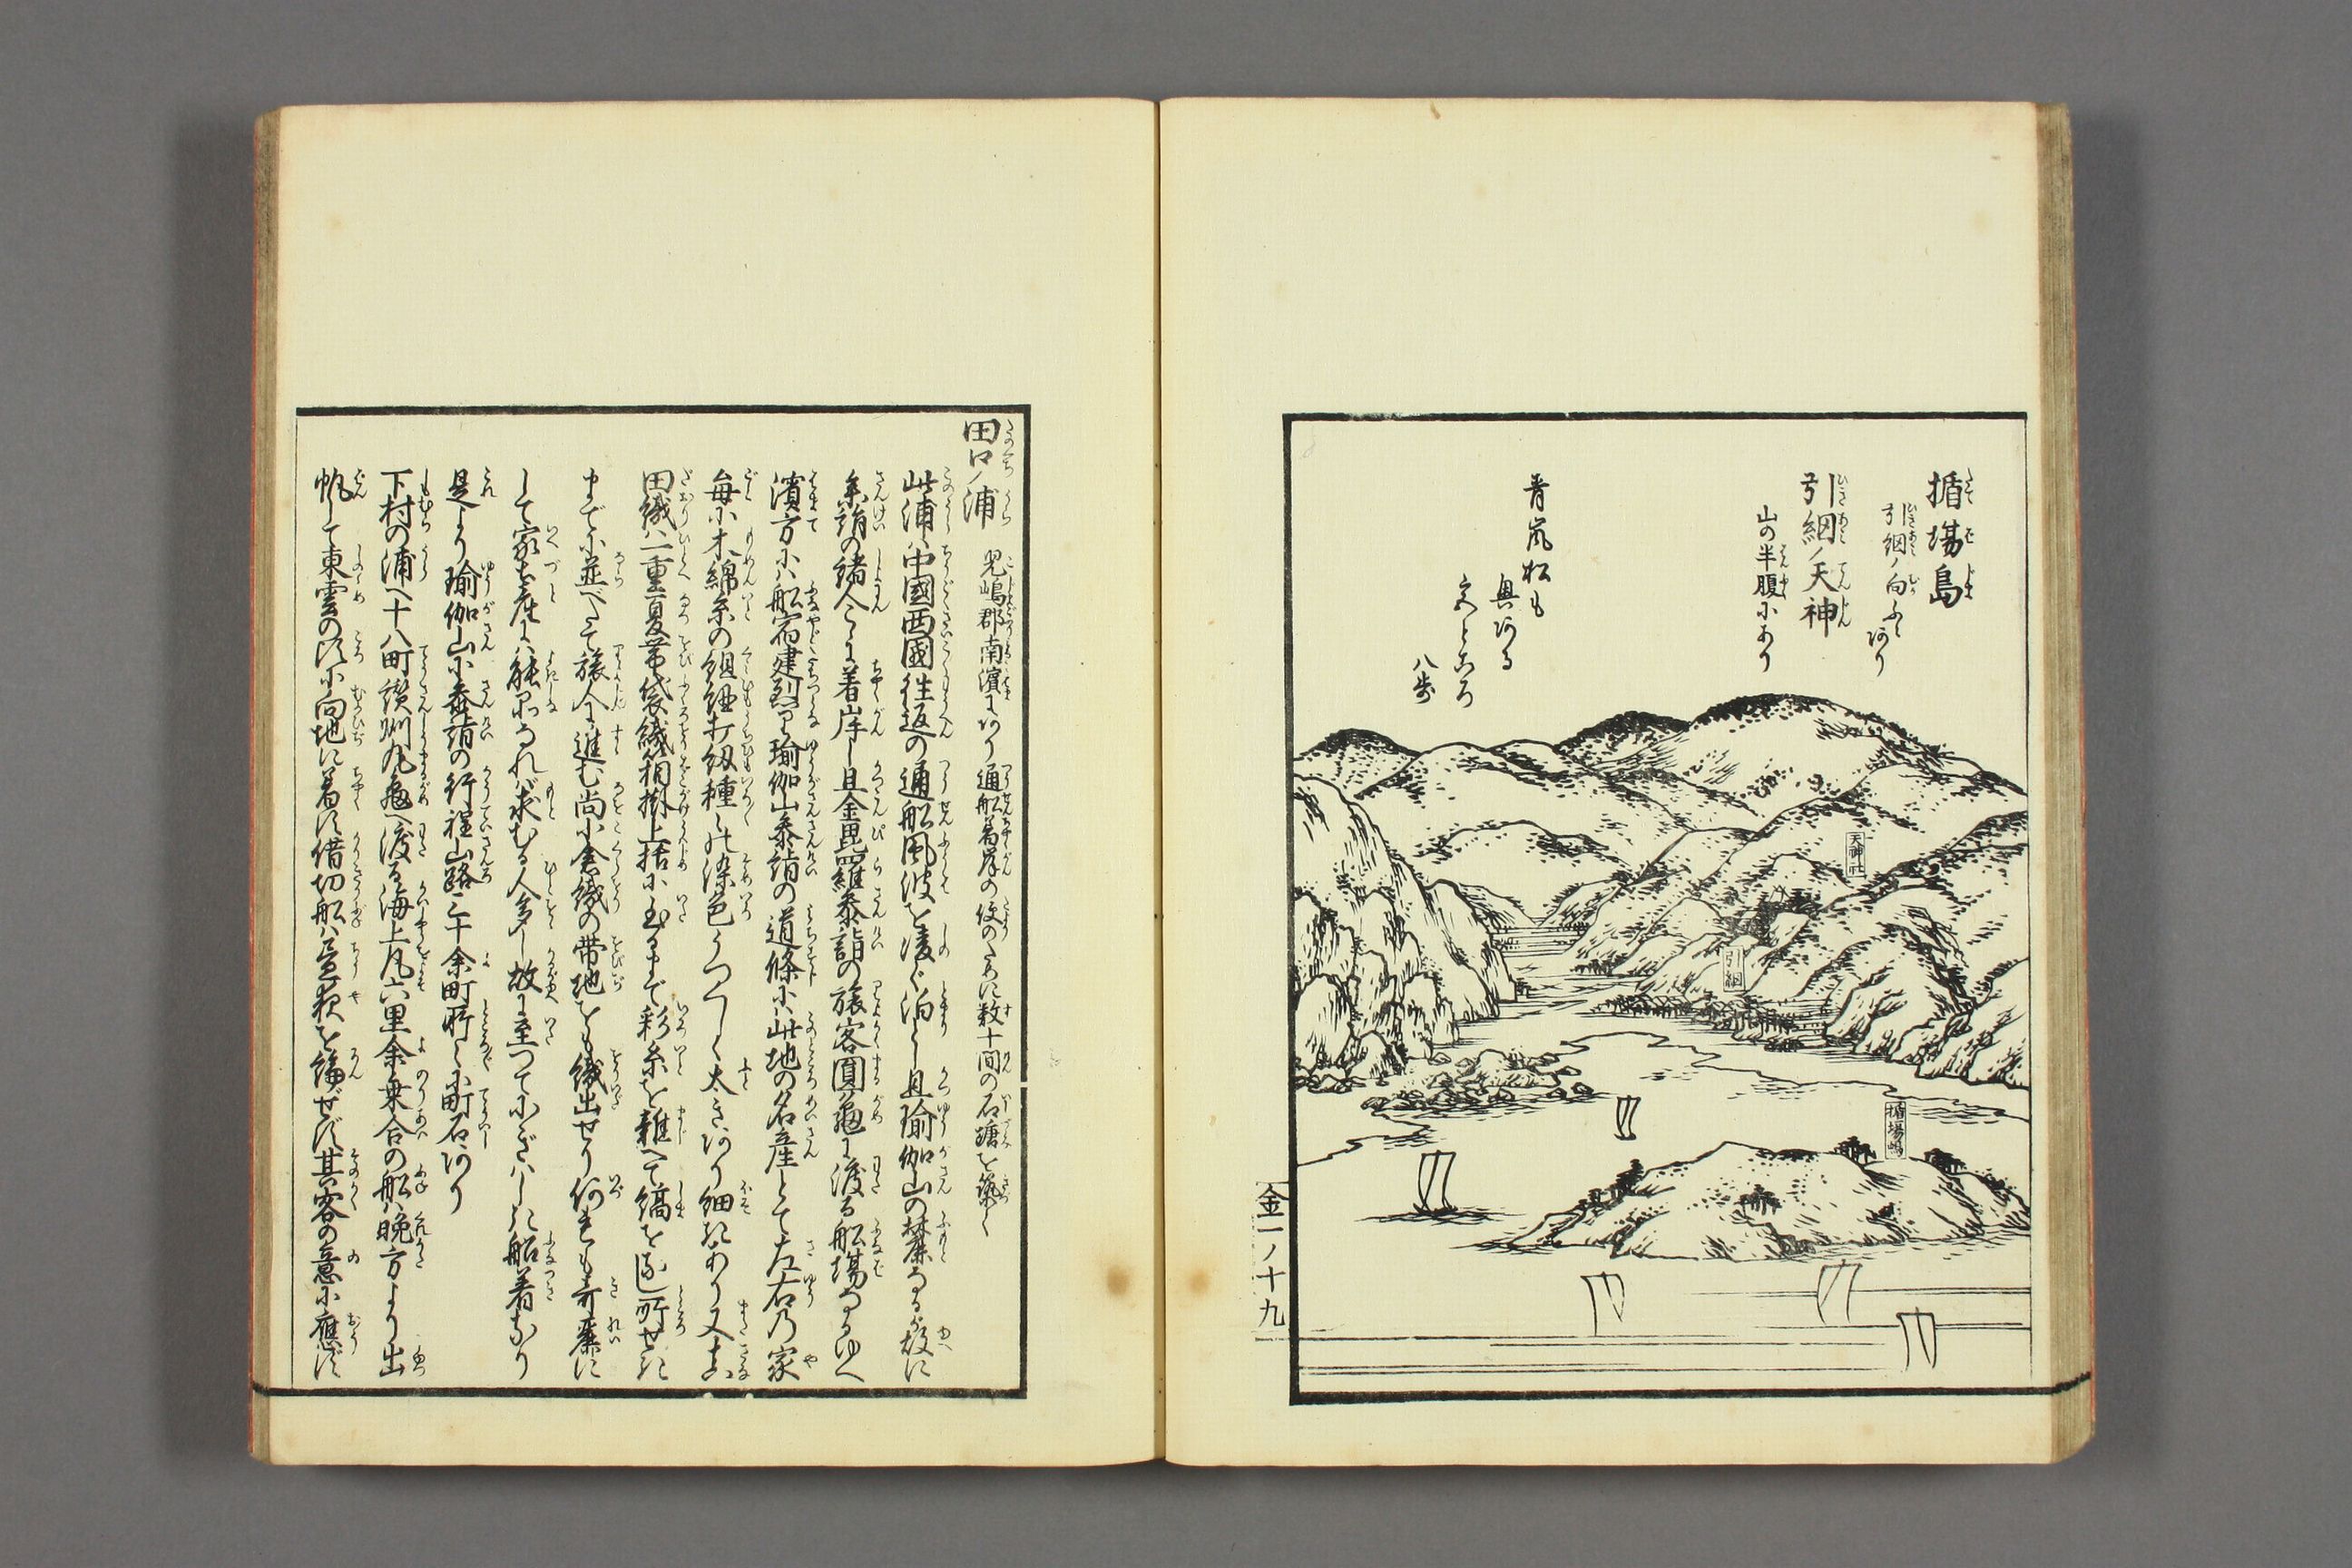 楯場島
引網ノ向ふに阿り
引網ノ天神
山の半腹にあり
青嵐松も
興阿る
天神社
引網
楯場嶋
金一ノ十九
田口ノ浦 児嶋郡南濱に阿り通船着岸の便のために数十間の石塘を築く
此浦ハ中國西國往返の通船風波を凌ぐ泊りし且瑜伽山の麓なるが故に
参詣の諸人こゝに着岸し且金毘羅参詣の旅客圓亀に渡る船場なるゆへ
濱方にハ船宿建列り瑜伽山参詣の道條にハ此地の名産とて左右乃家
毎に木綿糸の組紐打紐種々染色うつくしく太き阿り細きあり又真
田織ハ一重夏帯袋織箱掛上括に至るまで彩糸を雑へて縞を
まで並べたて旅人に進む尚小倉織の帯地をも織出せり何れも奇麗に
して家土産にハ能品なれバ求むる人多し故に至つてにぎハしき船着なり
是より瑜伽山に参詣の行程山路三十余町所々に町石阿り
下村の浦へ十八町讃州丸亀へ渡る海上凡六里余乗合の船ハ晩方より出
帆して東雲の頃に向地に着す借切船ハ昼夜を論ぜず其客の意に應ず